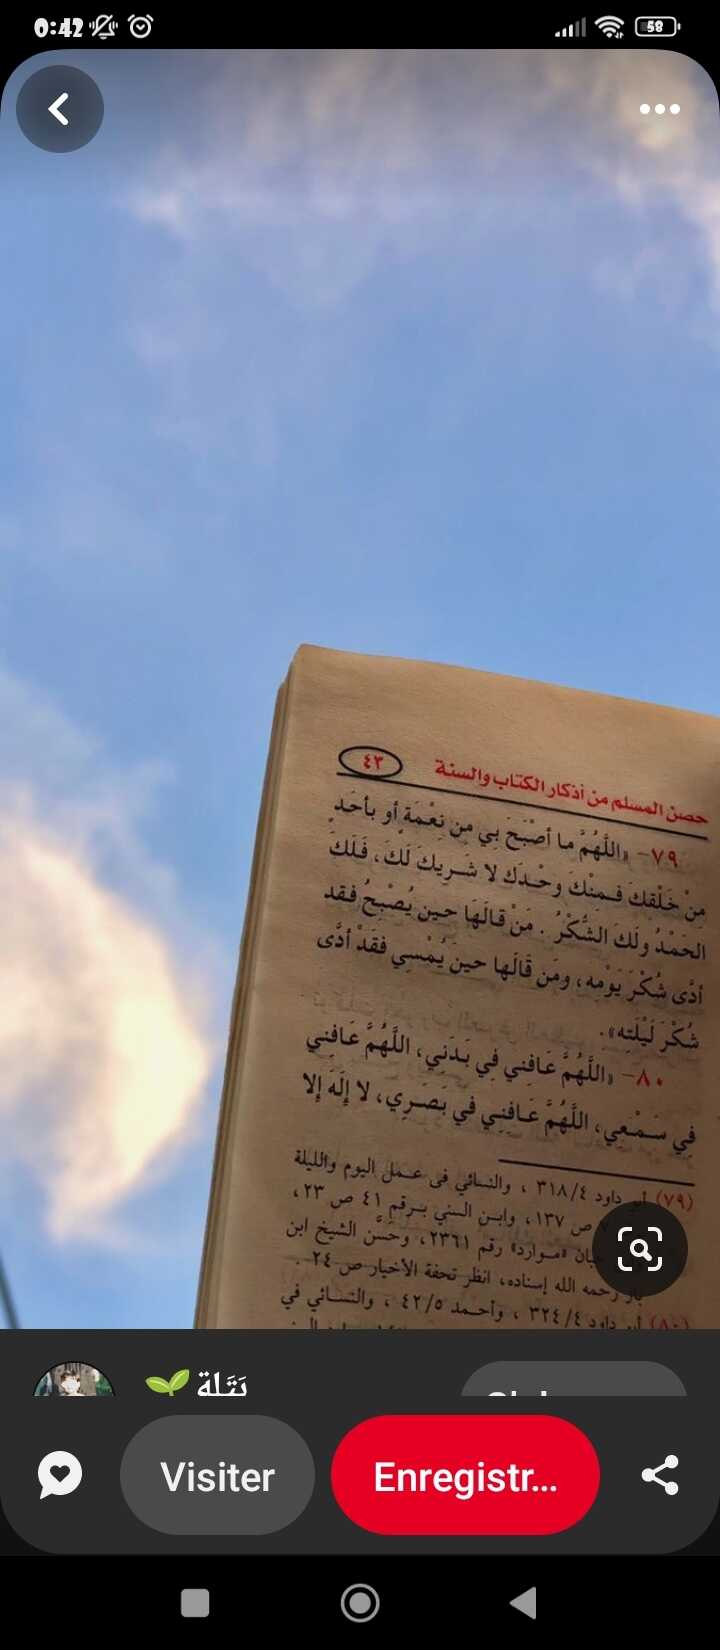 0:42
58
حصن المسلم من أذكار الكتاب والسنة
٤٣
٧٩– «اللَّهُمَّ ما أصْبَحَ بِي مِن نِعْمَة أو بأحَد
مِنْ خَلْقِكَ فَمِنْكَ وحْدَك لا شَرِيكَ لَكَ، فَلَكَ
الحَمْدُ ولَكَ الشُّكْرُ. مَنْ قالَهَا حين يُصْبحُ فقد
أدَّى شُكْرَ يَوْمِه، ومَن قَالَها حينَ يُمْسِي فقَدْ أدَّى
شُكْرَ لَيْلَتِه».
٨٠– «اللَّهُمَّ عَافِني فِي بَدَنِي، اللَّهُمَّ عَافِنِي
فِي سَمْعِي، اللَّهُمَّ عَافني في بَصَرِي، لا إلَهَ إلا
(٧٩) أبو داود ٣١٨/٤ ، والنسائي فى عمل اليوم والليلة
ص ١٣٧ ، وابن السني برقم ٤١ ص ٢٣ ،
حبان «موارد» رقم ٢٣٦١ ، وحَسَّن الشيخ ابن
باز رحمه الله إسناده، انظر تحفة الأخيار ص ٢٤ .
(٨٠) أبو داود ٣٢٤/٤ ، وأحمد ٤٢/٥ ، والنسائي في
بَتَلة
Visiter
Enregistr...